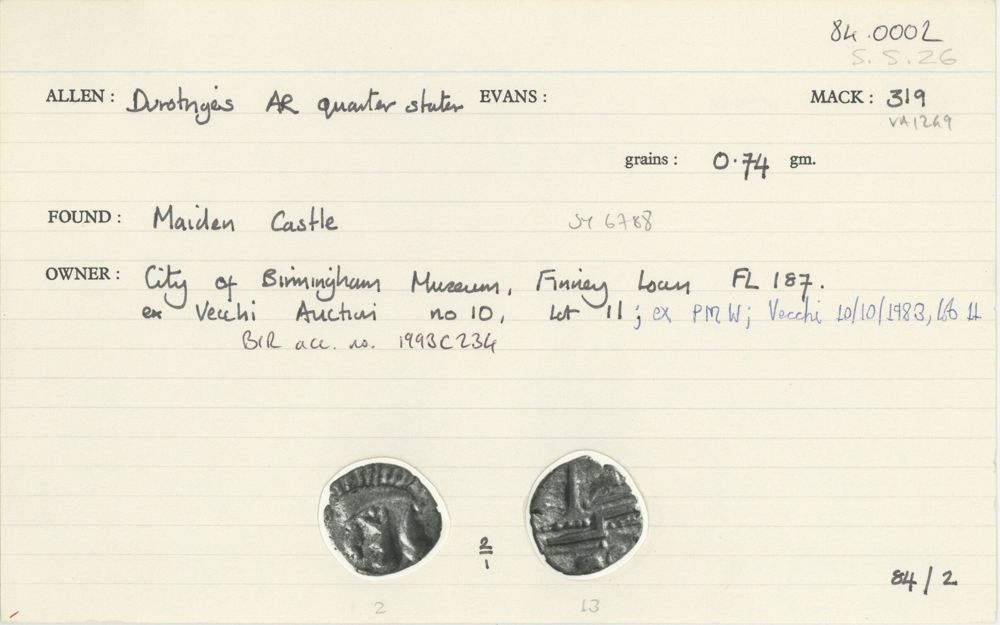 84.0002
S.S.26
ALLEN: Durotriges AR quarter stater EVANS: MACK: 319
VA1249
grains: 0.74 gm.
FOUND: Maiden Castle SY 6788
OWNER: City of Birmingham Museum, Finney Loan FL 187.
ex Vecchi Auction no 10, Lot 11; ex PMW; Vecchi 10/10/1983, lot 11
BIR acc. no. 1993C234
2
1
84/2
2 13